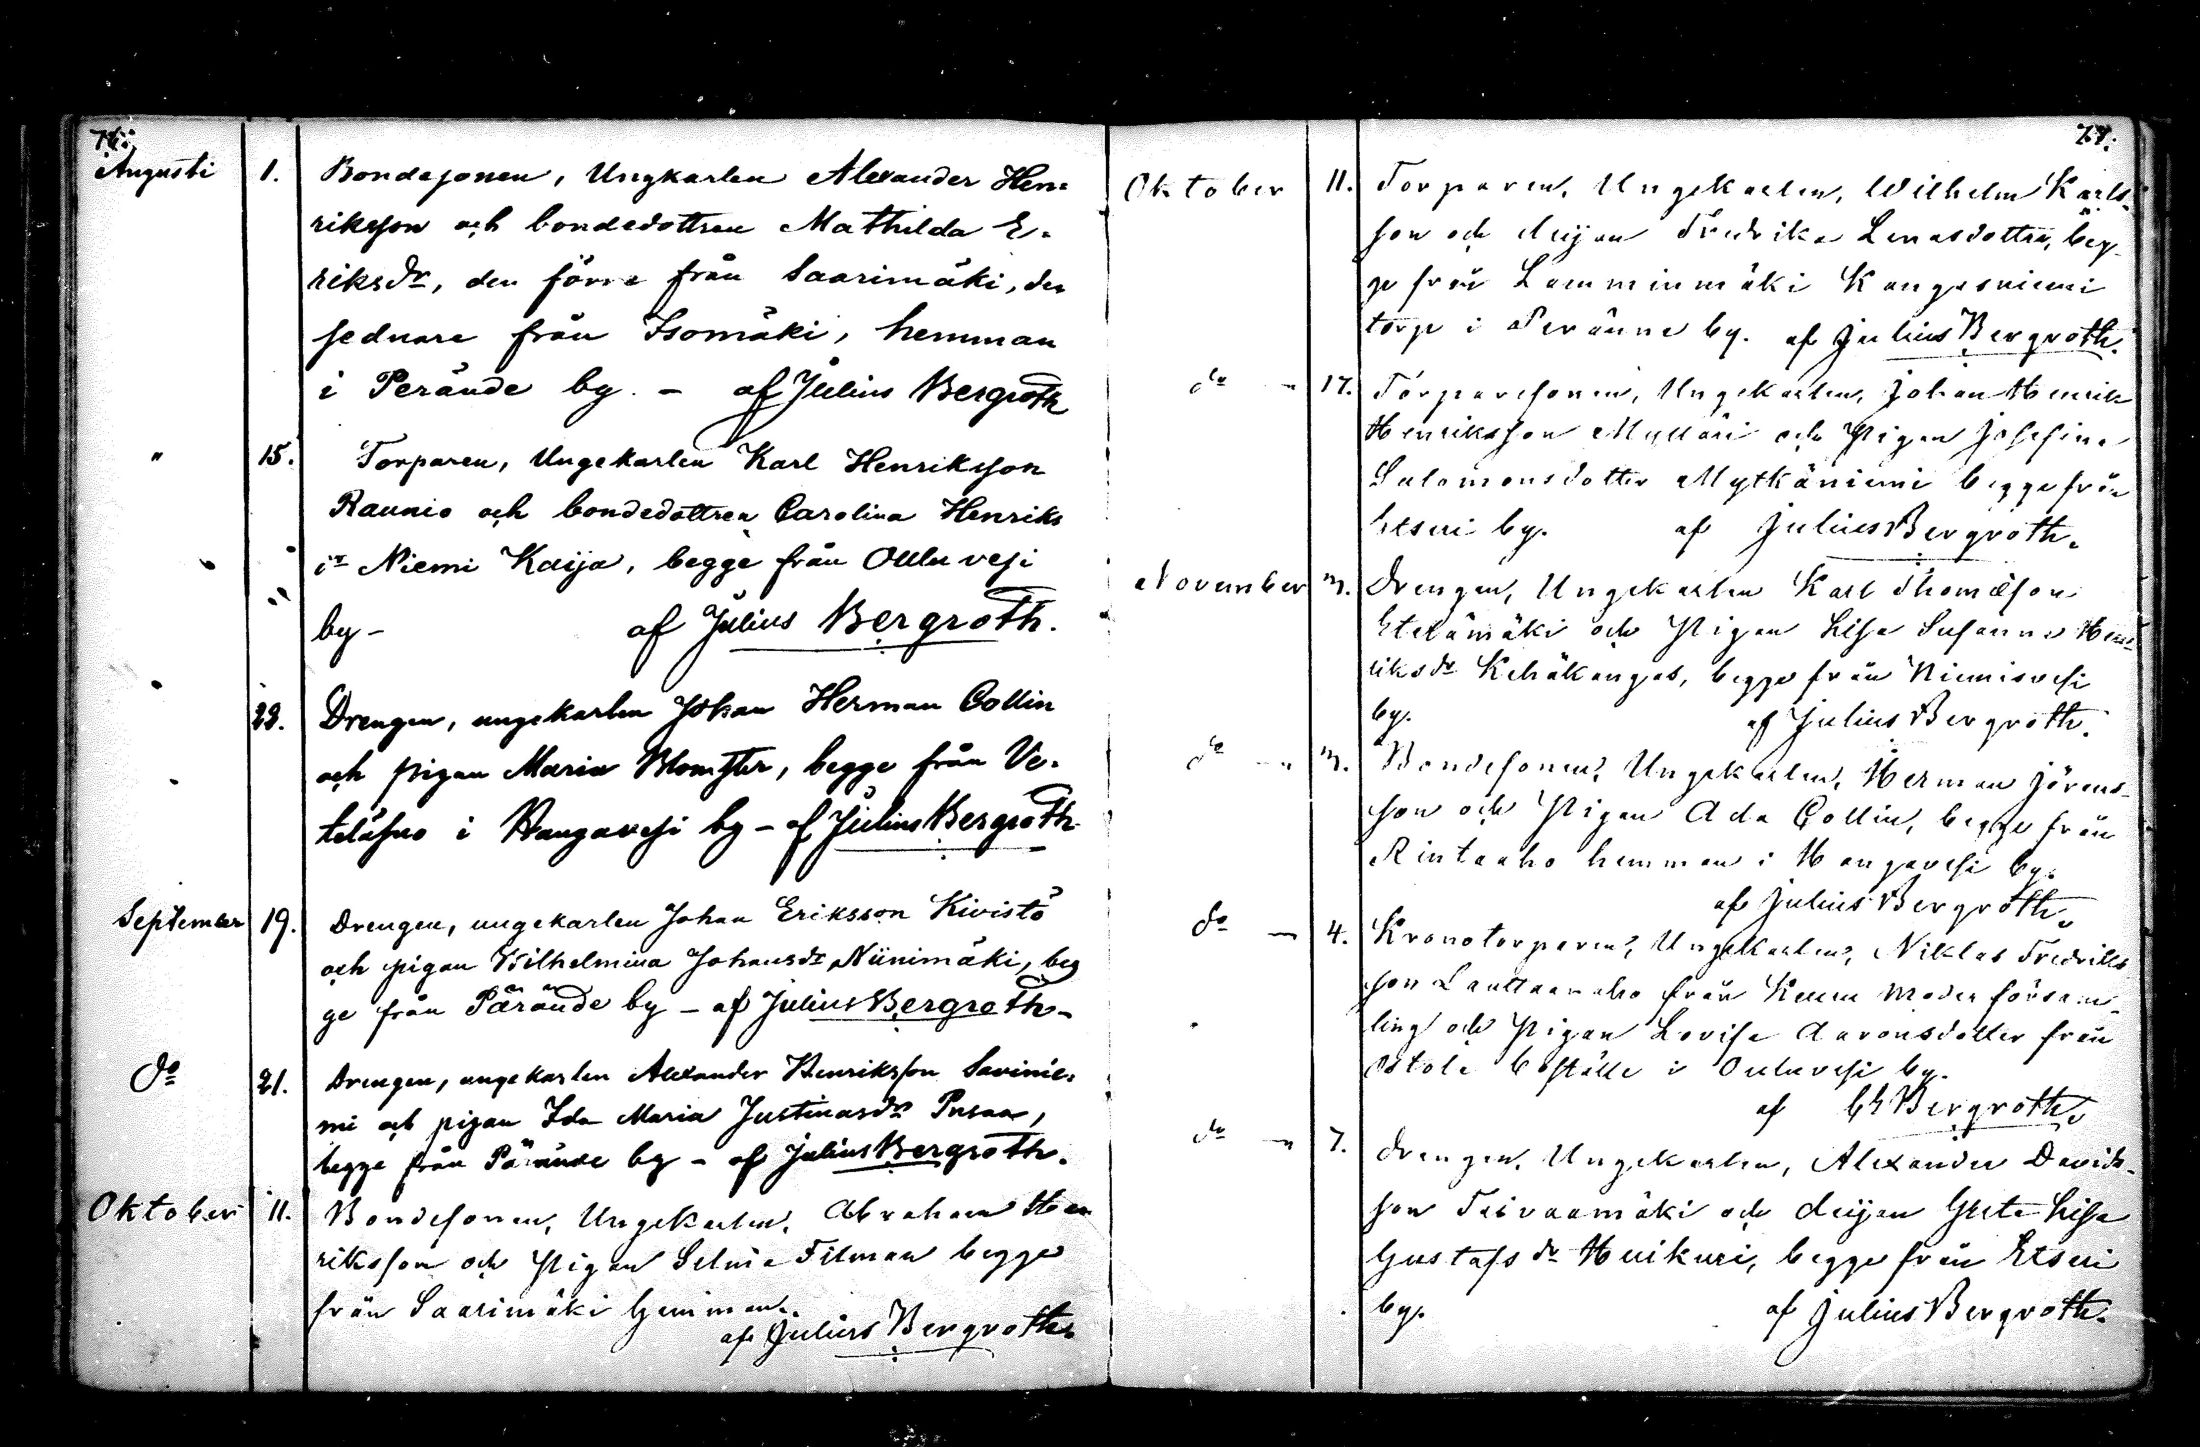 76.
Augusti 1. Bondesonen, Ungkarlen Alexander Hen-
riksson och bondedottren Mathilda E-
riksdr, den förre från Saarimäki, den
sednare från Isomäki, hemman
i Perände by. - af Julius Bergroth
" 15. Torparen, Ungekarlen Karl Henriksson
Raunio och bondedottren Carolina Henriks
dr Niemi Kaija, begge från Ouluvesi
by - af Julius Bergroth.
22. Drengen, ungekarlen Johan Herman Collin
och pigan Maria Blomster, begge från Ve-
teläsuo i Hangavesi by - af Julius Bergroth
September 19. Drengen, ungekarlen Johan Eriksson Kivistö
och pigan Wilhelmina Johansdr Niinimäki, beg
ge från Pärände by - af Julius Bergroth -
do 21. Drengen, ungekarlen Alexander Henriksson Savinie-
mi och pigan Ida Maria Justinasdr Pusaa,
begge från Pärände by - af Julius Bergroth.
Oktober 11. Bondesonen, Ungekarlen, Abraham Hen
riksson och Pigan Selma Filman begge
från Saarimäki hemman.
af Julius Bergroth.
77.
Oktober 11. Torparen, Ungekarlen, Wilhelm Karls-
son och Pigan Fredrika Lenasdotter, beg-
ge från Lamminmäki Kangasniemi
torp i Peränne by. af Julius Bergroth.
do " 17. Torparesonen, Ungekarlen, Johan Henrik
Henriksson Mylläri och Pigan Josefina
Salomonsdotter Mytkäniemi begge från
Etseri by. af Julius Bergroth.
November 3. Drengen, Ungekarlen Karl Thomasson
Etelämäki och Pigan Lisa Susanna Hen-
riksdr Kehäkangas, begge från Niemisvesi
by. af Julius Bergroth.
do " 3. Bondesonen, Ungekarlen, Herman Jörens-
son och Pigan Ada Collin, begge från
Rintaaho hemman i Hangavesi by.
af Julius Bergroth.
do " 4. Kronotorparen, Ungekarlen, Niklas Fredriks
son Lauttaaho från Keuru Moder försam-
ling och Pigan Lovisa Aaronsdotter från
Ostola boställe i Ouluvesi by.
af Bergroth.
do " 7. Drengen, Ungekarlen, Alexander Davids-
son Teirvaamäki och Pigan Greta Lisa
Gustafsdr Huikuri, begge från Etseri
by. af Julius Bergroth.